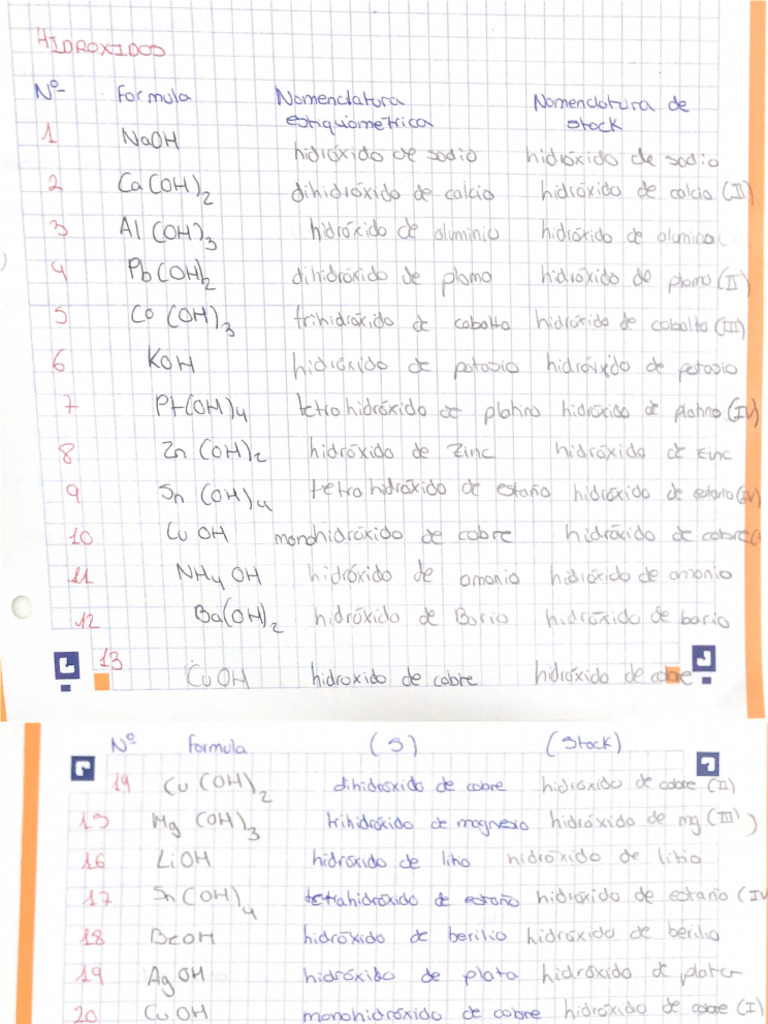 HIDROXIDOS
Nº- Formula Nomenclatura estiquiometrica Nomenclatura de stock
1 NaOH hidróxido de sodio hidróxido de sodio
2 Ca(OH)2 dihidróxido de calcio hidróxido de calcio (II)
3 Al(OH)3 hidróxido de aluminio hidróxido de
4 Pb(OH)2 dihidróxido de plomo hidróxido de plomo (II)
5 Co(OH)3 trihidróxido de cobalto hidróxido de cobalto (III)
6 KOH hidróxido de potasio hidróxido de potasio
7 Pt(OH)4 tetrahidróxido de platino hidróxido de platino (IV)
8 Zn(OH)2 hidróxido de Zinc hidróxido de Zinc
9 Sn(OH)4 tetrahidróxido de estaño hidróxido de estaño (IV)
10 CuOH monohidróxido de cobre hidróxido de cobre
11 NH4OH hidróxido de amonio hidróxido de amonio
12 Ba(OH)2 hidróxido de Bario hidróxido de bario
13 CuOH hidroxido de cobre hidróxido de cobre
Nº Formula (S) (Stock)
14 Cu(OH)2 dihidróxido de cobre hidróxido de cobre (II)
15 Mg(OH)3 trihidróxido de magnesio hidróxido de mg (III)
16 LiOH hidróxido de litio hidróxido de litio
17 Sn(OH)4 tetrahidróxido de estaño hidróxido de estaño (IV
18 BeOH hidróxido de berilio hidróxido de berilio
19 AgOH hidróxido de plata hidróxido de plata
20 CuOH monohidróxido de cobre hidróxido de cobre (I)